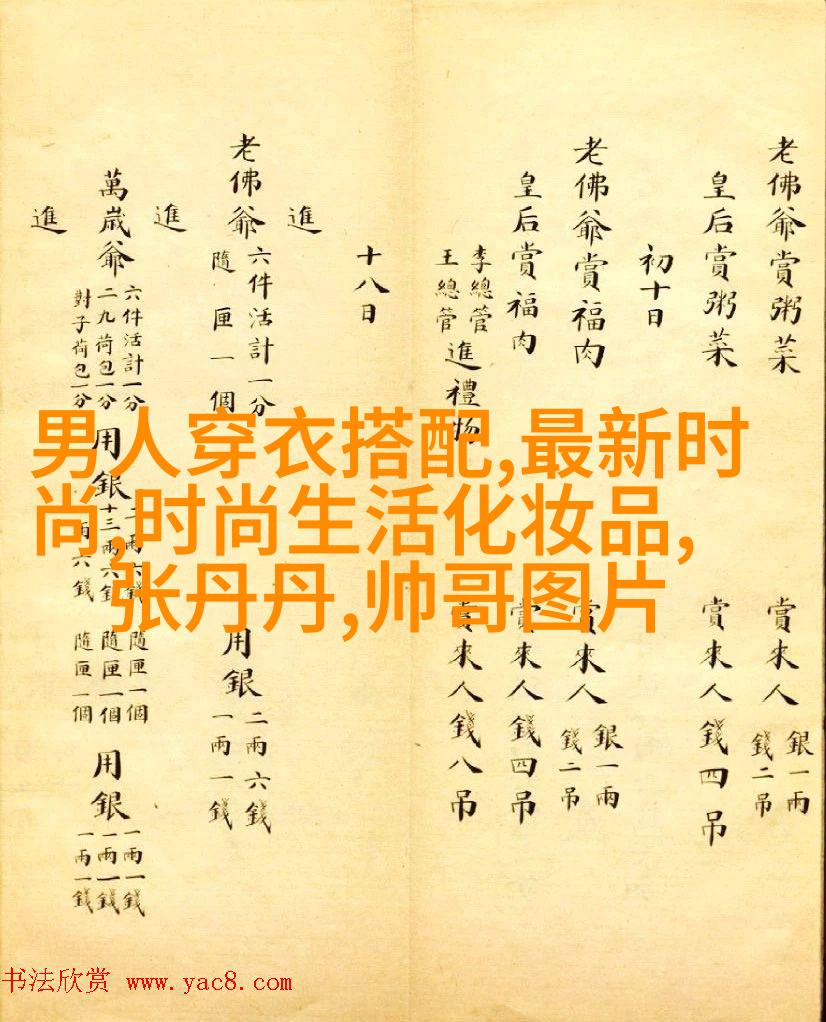 老佛爺賞粥菜 賞來人 銀一兩 錢二吊
皇后賞粥菜 賞來人錢四吊
初十日
老佛爺賞福肉 賞來人 銀一兩 錢二吊
皇后賞福肉 賞來人錢四吊
李總管 王總管 進禮物 賞來人錢八吊
十八日
進
老佛爺 六件活計一分 隨匣一個 用銀 二兩六錢 一兩一錢
進
萬歲爺 六件活計一分 二九荷包一分 對子荷包一分 用銀 二兩六錢 十三兩六錢 兩六錢 隨匣一個 隨匣一個 隨匣一個 用銀 一兩一錢 一兩一錢 一兩一錢
進
男人穿衣搭配,最新时
尚,时尚生活化妆品,
张丹丹,帅哥图片
书法欣赏 www.yac8.com